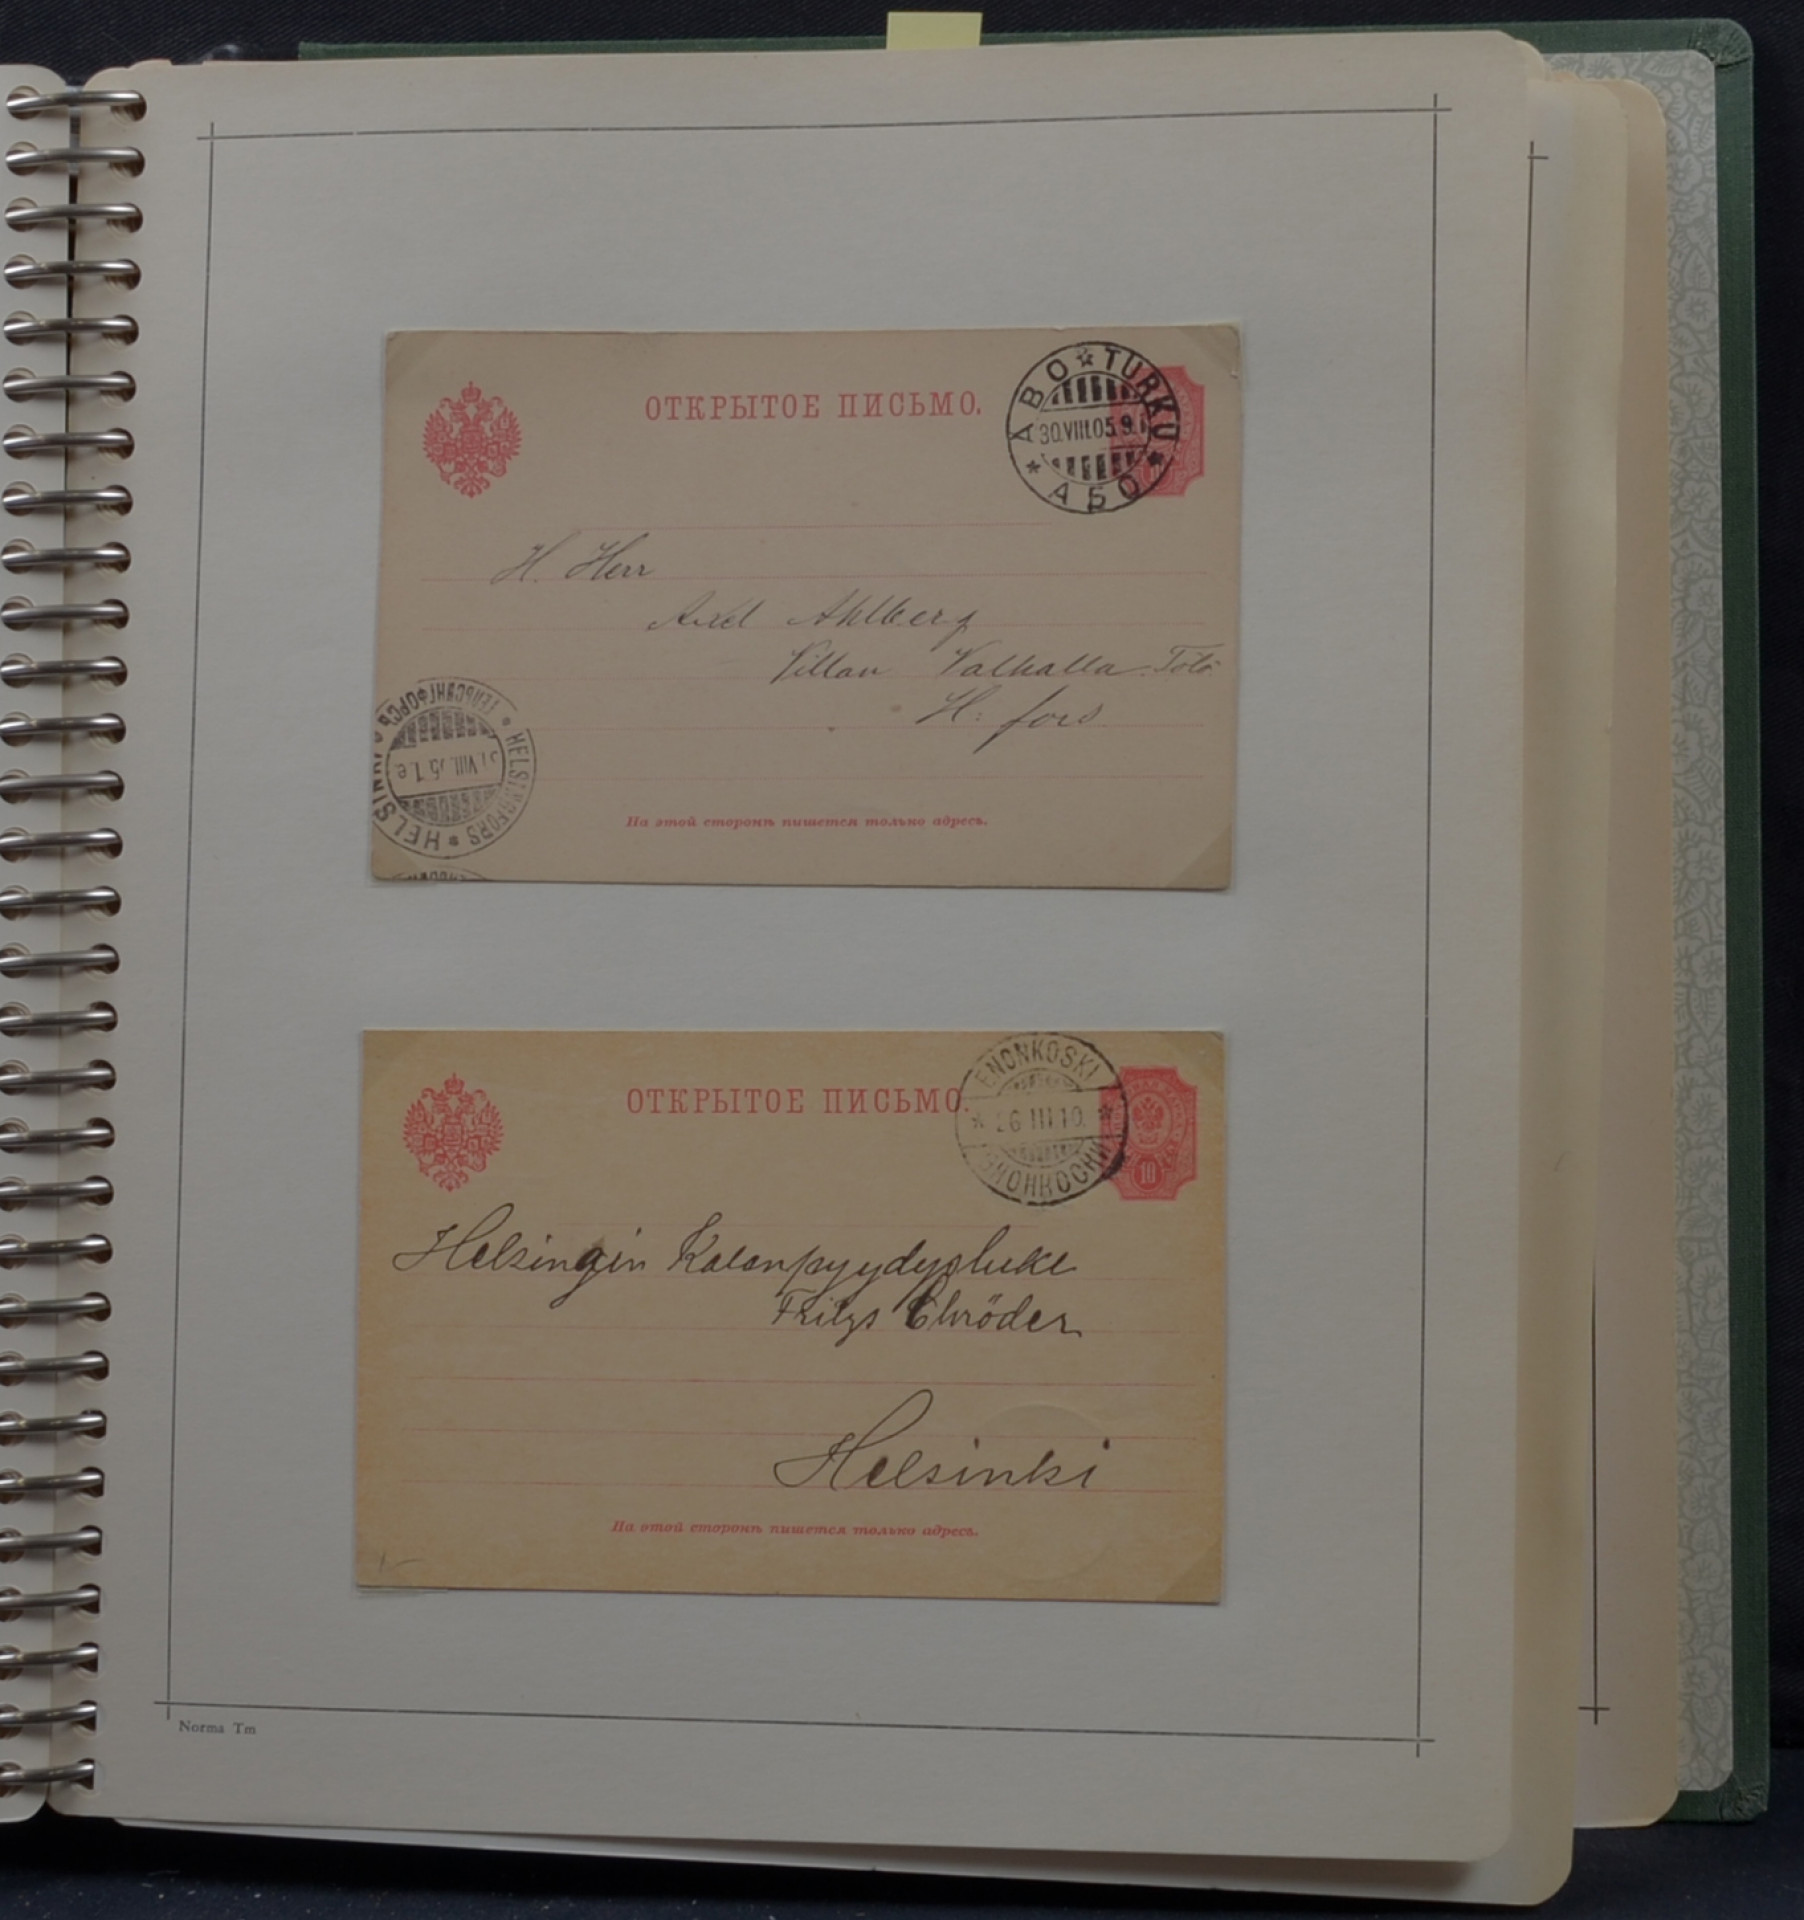 ОТКРЫТОЕ ПИСЬМО.
ABO ☆ TURKU * АБО *
30.VIII.05.9.
H. Herr
Axel Ahlberg
Villan Valhalla Tölö
H:fors
HELSINGFORS * HELSINKI * ГЕЛЬСИНГФОРСЪ
VIII.05.7.e
На этой сторонѣ пишется только адресъ.
ОТКРЫТОЕ ПИСЬМО.
ENONKOSKI
26 III 10.
10
Helsingin Kalanpyydysluke
Fritys Chröder
Helsinki
На этой сторонѣ пишется только адресъ.
Norma Tm